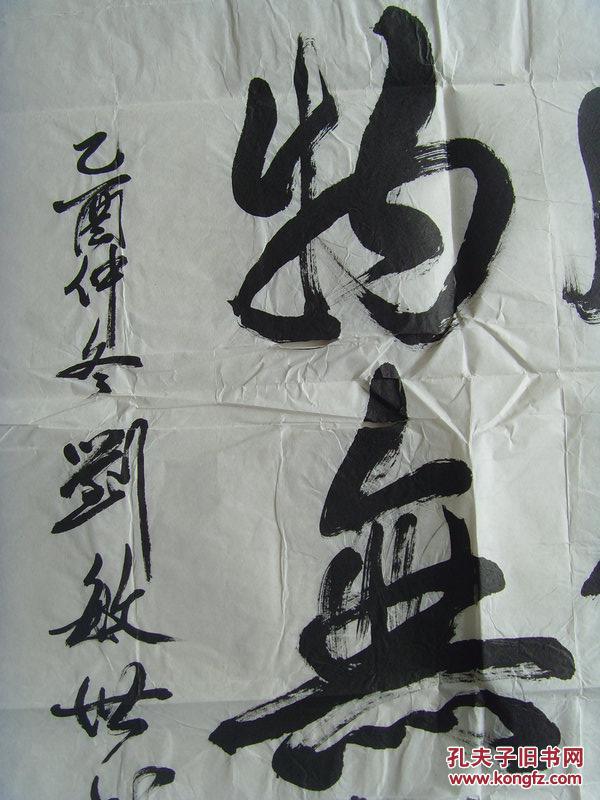 物無
乙酉仲冬劉敏世
孔夫子旧书网
www.kongfz.com